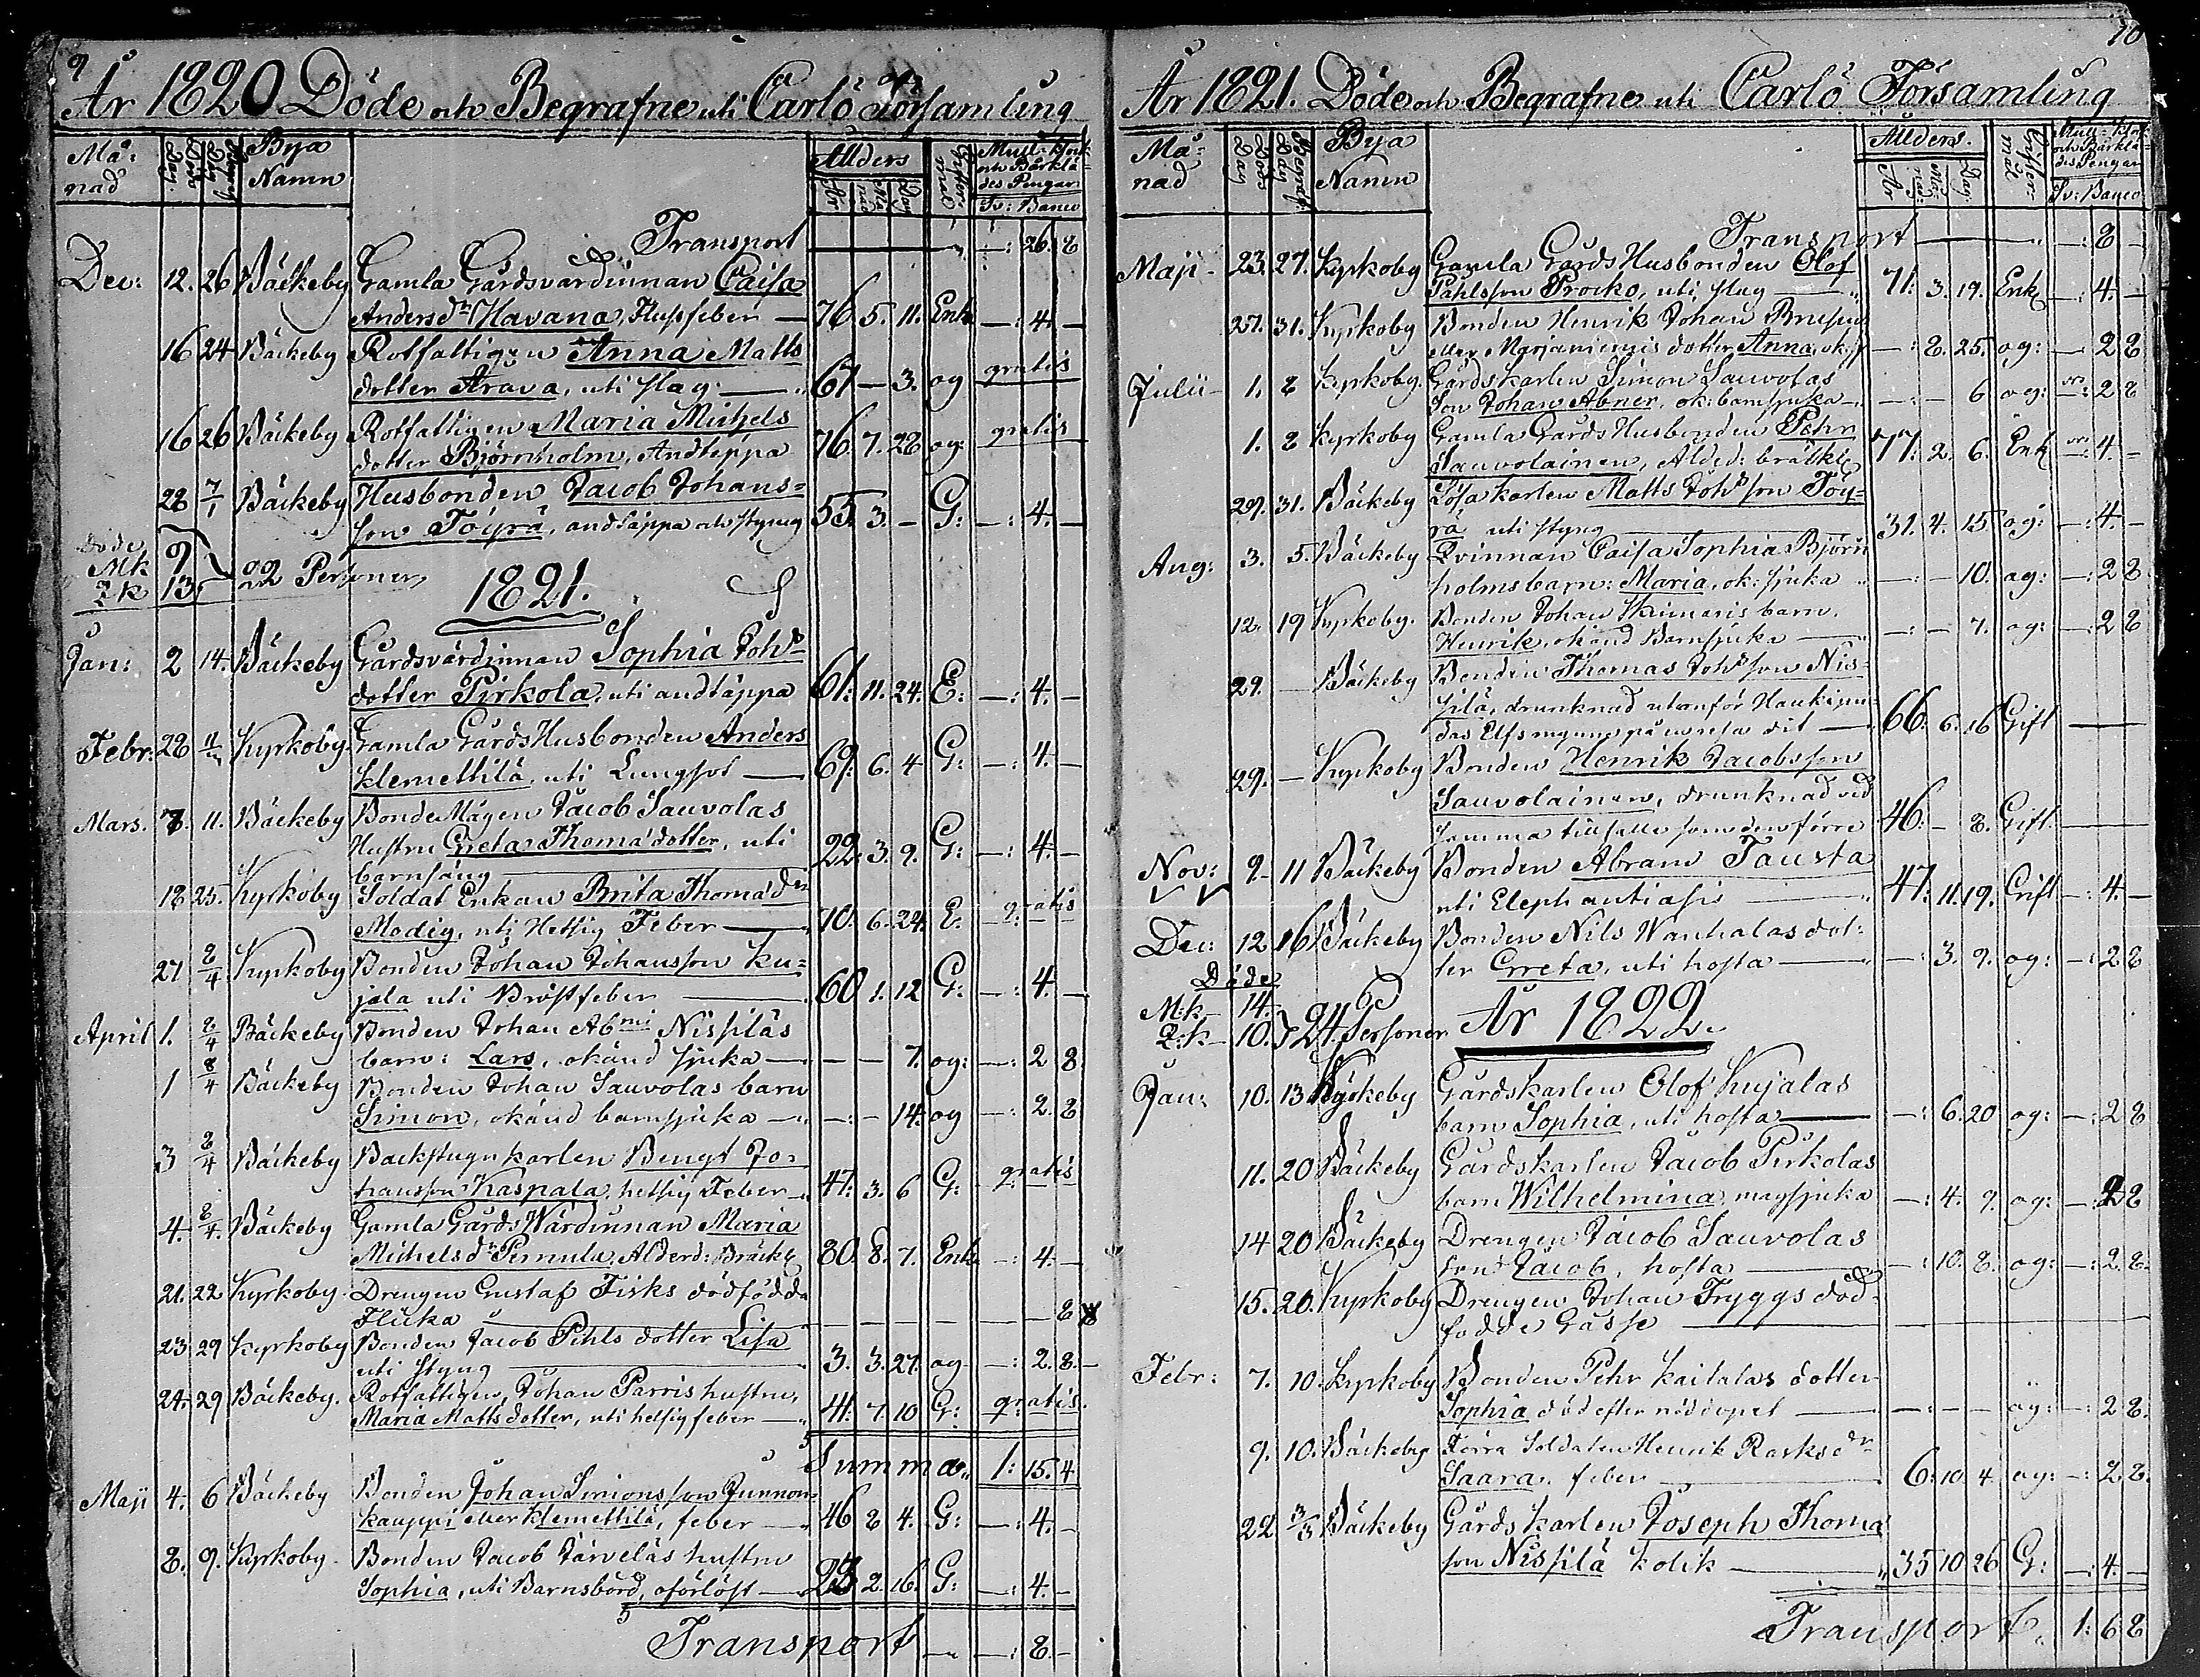 9
År 1820 Döde och Begrafne uti Carlö Församling
Må-
nad
Döds
Dag.
Begraf:
Dag
Bya
Namn
Ållders
År
Må-
nad
Dag
Giftermål
Mull-Klock-
och Bårklä-
des Pengar.
Sr: Banco
Transport — 26. 8
Dec: 12. 26 Bäckeby Gamla Gårdsvärdinnan Caisa
Andersdr Havana, Husfeber — 76. 5. 11. Enk —: 4. —
16 24 Bäckeby Rotfattigen Anna Matts
dotter Arava, uti slag. — 67 — 3. og gratis
16 26 Bäckeby Rotfattigen Maria Michels
dotter Björnholm, Andtäppa 76 7. 28 og: gratis
28 7/1 Bäckeby Husbonden Jacob Johans-
son Töyrä, andtäppa och styng 55. 3. — G: —: 4. —
döde
Mk 9
Qk 13 } 22 Personer
1821.
Jan: 2 14. Bäckeby Gårdsvärdinnan Sophia Johs-
dotter Pirkola, uti andtäppa 61: 11. 24. E: —: 4. —
Febr: 28 11/m Kyrkoby Gamla GårdsHusbonden Anders
Klemettilä, uti Lungsot — 69: 6. 4 G: —: 4. —
Mars. 7. 11. Bäckeby BondeMågen Jacob Sauvolas
Hustru Greta Thomædotter, uti
barnsäng — 22: 3. 9. G: —: 4. —
18 25. Kyrkoby Soldat Enkan Brita Thomædr
Modig, uti Hetsig Feber — 70. 6. 24. E. gratis
27 8/4 Kyrkoby Bonden Johan Johansson Ku-
jala uti Bröstfeber — 60 1. 12 G: —: 4. —
April 1. 8/4 Bäckeby Bonden Johan Abmi Nissiläs
barn: Lars, okänd sjuka — — — 7. og: —: 2 8.
1 8/4 Bäckeby Bonden Johan Sauvolas barn
Simon, okänd barnsjuka — —: — 14. og —: 2. 8
3 8/4 Bäckeby Backstugukarlen Bengt Jo-
hansson Kaspala, hetsig Feber — 47: 3. 6 G: gratis
4. 8/4. Bäckeby Gamla GårdsWärdinnan Maria
Michelsdr Pernula, Alderd: Bräckl 80. 8. 7. Enk —: 4. —
21. 22 Kyrkoby. Drengen Gustaf Fisks dödfödda
Flicka — — — — — 8
23. 29 Kyrkoby Bonden Jacob Pihls dotter Lisa
uti styng — 3. 3. 27. og —: 2. 8. —
24. 29 Bäckeby. Rotfattigen, Johan Parris hustru,
Maria Mattsdotter, uti hetsig feber — 41: 7. 10 G: gratis.
Summa 1: 15. 4
Maji 4. 6 Bäckeby Bonden Johan Simonsson Junnon-
kauppi eller Klemettilä, feber — 46 2 4. G: —: 4. —
8. 9. Kyrkoby. Bonden Jacob Järveläs hustru
Sophia, uti Barnsbörd, oförlöst — 23 2. 16. G: —: 4. —
Transport — 8. —
10
År 1821. Döde och Begrafne uti Carlö Församling
Må-
nad
Döds
Dag
Begraf:
Dag
Bya
Namn
Ållders.
År
Må-
nad.
Dag.
Gifter-
mål
Mull-Klock-
och Bårklä-
des Pengar
Sr: Banco
Transport — —: 8 —
Maji — 23. 27. Kyrkoby Gamla Gårds Husbonden Olof
Påhlsson Procko, uti slag — 71. 3. 19. Enkl —: 4. —
27. 31. Kyrkoby Bonden Henrik Johan Brusun
eller Marjaniemis dotter Anna, ok: s —: 8. 25. og: —: 2 8
Julii — 1. 8 Kyrkoby. Gårdskarlen Simon Sauvolas
Son Johan Abner, ok: barnsjuka — —: — 6 og: —: 2 8
1. 8 Kyrkoby Gamla Gårds Husbonden Pehr
Sauvolainen, Ålded: bräckl 77. 2. 6. Enkl —: 4. —
29. 31. Bäckeby Lösa karlen Matts Johsson Töy-
rä uti styng — 31. 4. 15 og: —: 4. —
Aug: 3. 5. Bäckeby Qvinnan Caisa Sophia Björn
holms barn: Maria, ok: sjuka —: — 10. og: —: 2 8.
12. 19 Kyrkoby. Bonden Johan Heimaris barn.
Henrik, okänd Barnsjuka — —: — 7. og: —: 2 8
29. — Bäckeby Bonden Thomas Johsson Nis-
silä, drunknad utanför Haukipu-
das Elfs mynne på en resa dit — 66. 6. 16 Gift —
29. — Kyrkoby Bonden Henrik Jacobsson
Sauvolainen, drunknad vid
samma tillfälle som den förre 46. — 8. Gift. —
Nov: 9. 11 Bäckeby Bonden Abram Tausta
uti Elephantiasis — 47: 11. 19. Gift —: 4. —
Dec: 12 16 Bäckeby Bonden Nils Wanhalas dot-
ter Greta, uti hosta — —: 3. 9. og: —: 2 8
Döde
M:k 14.
Q:k 10. } 24. Personer
År 1822.
Jan: 10. 13 Kyrkeby Gårdskarlen Olof Kujalas
barn Sophia, uti hosta — —: 6. 20 og: —: 2 8
11. 20 Bäckeby Gårdskarlen Jacob Pirkolas
barn Wilhelmina, magsjuka —: 4. 9. og: —: 2 8
14 20 Bäckeby Drengen Jacob Sauvolas
son Jacob, hosta — —: 10. 8. og: —: 2 8.
15. 20. Kyrkoby Drengen Johan Tryggs död-
födde Gåsse —
Febr: 7. 10. Kyrkoby Bonden Pehr Kaitalas dotter
Sophia död efter nöddopet — — — — og: —: 2 8.
9. 10. Bäckeby Förra Soldaten Henrik Rasks dr
Saara. feber — 6: 10. 4. og: —: 2 8.
22 3/3 Bäckeby Gårdskarlen Joseph Thomæ
son Nissilä kolik — 35 10 26 G: —: 4. —
Transport 1: 6 8